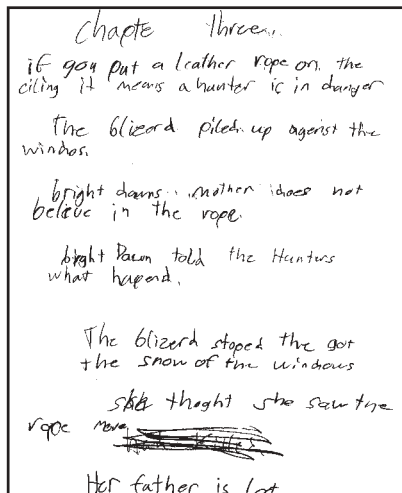 Chapte three..
if you put a leather rope on the
ciling it means a hunter is in danger
The blizerd piled up agenst the
windos.
bright dawns mother does not
believe in the rope.
bright Dawn told the Hunters
what hapend.
The blizerd stoped the got
the snow of the windows
she thoght she saw the
rope move
Her father is lot